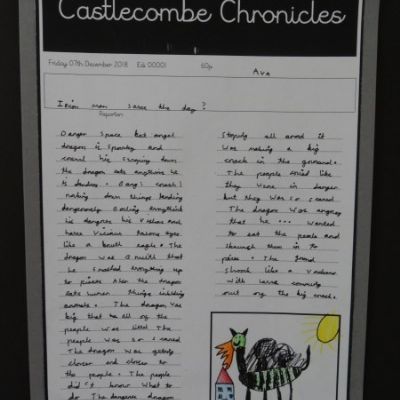 Castlecombe Chronicles
Friday 07th December 2018 Edi 00001 60p
Ava
Iron man saves the day ?
Reporter:
Danger space bat angel
dragon is spooky and
coming down
the dragon eats anything he
is deadly . Bang! crash!
nocking down things landing
dangerously eating everything
is dangerous his vicious and
haves vicious talons
like a eagle . The
dragon was mean that
he smashed everything up
to pieces Also the dragon
eats human things including
animals . The dragon was
big that he all of the
people was little The
people was so scared
The dragon was getting
closer and closer to
the people . The people
did't know what to
do The dangerous dragon
Stomping all arond it
was making a big
crack in the ground .
The people like
they were in danger
but they was so scared
The dragon was angrey
that he ... wanted
to eat the people and
them in to
pieces . The ground
shook like a
with larva coming
out of the big crack .